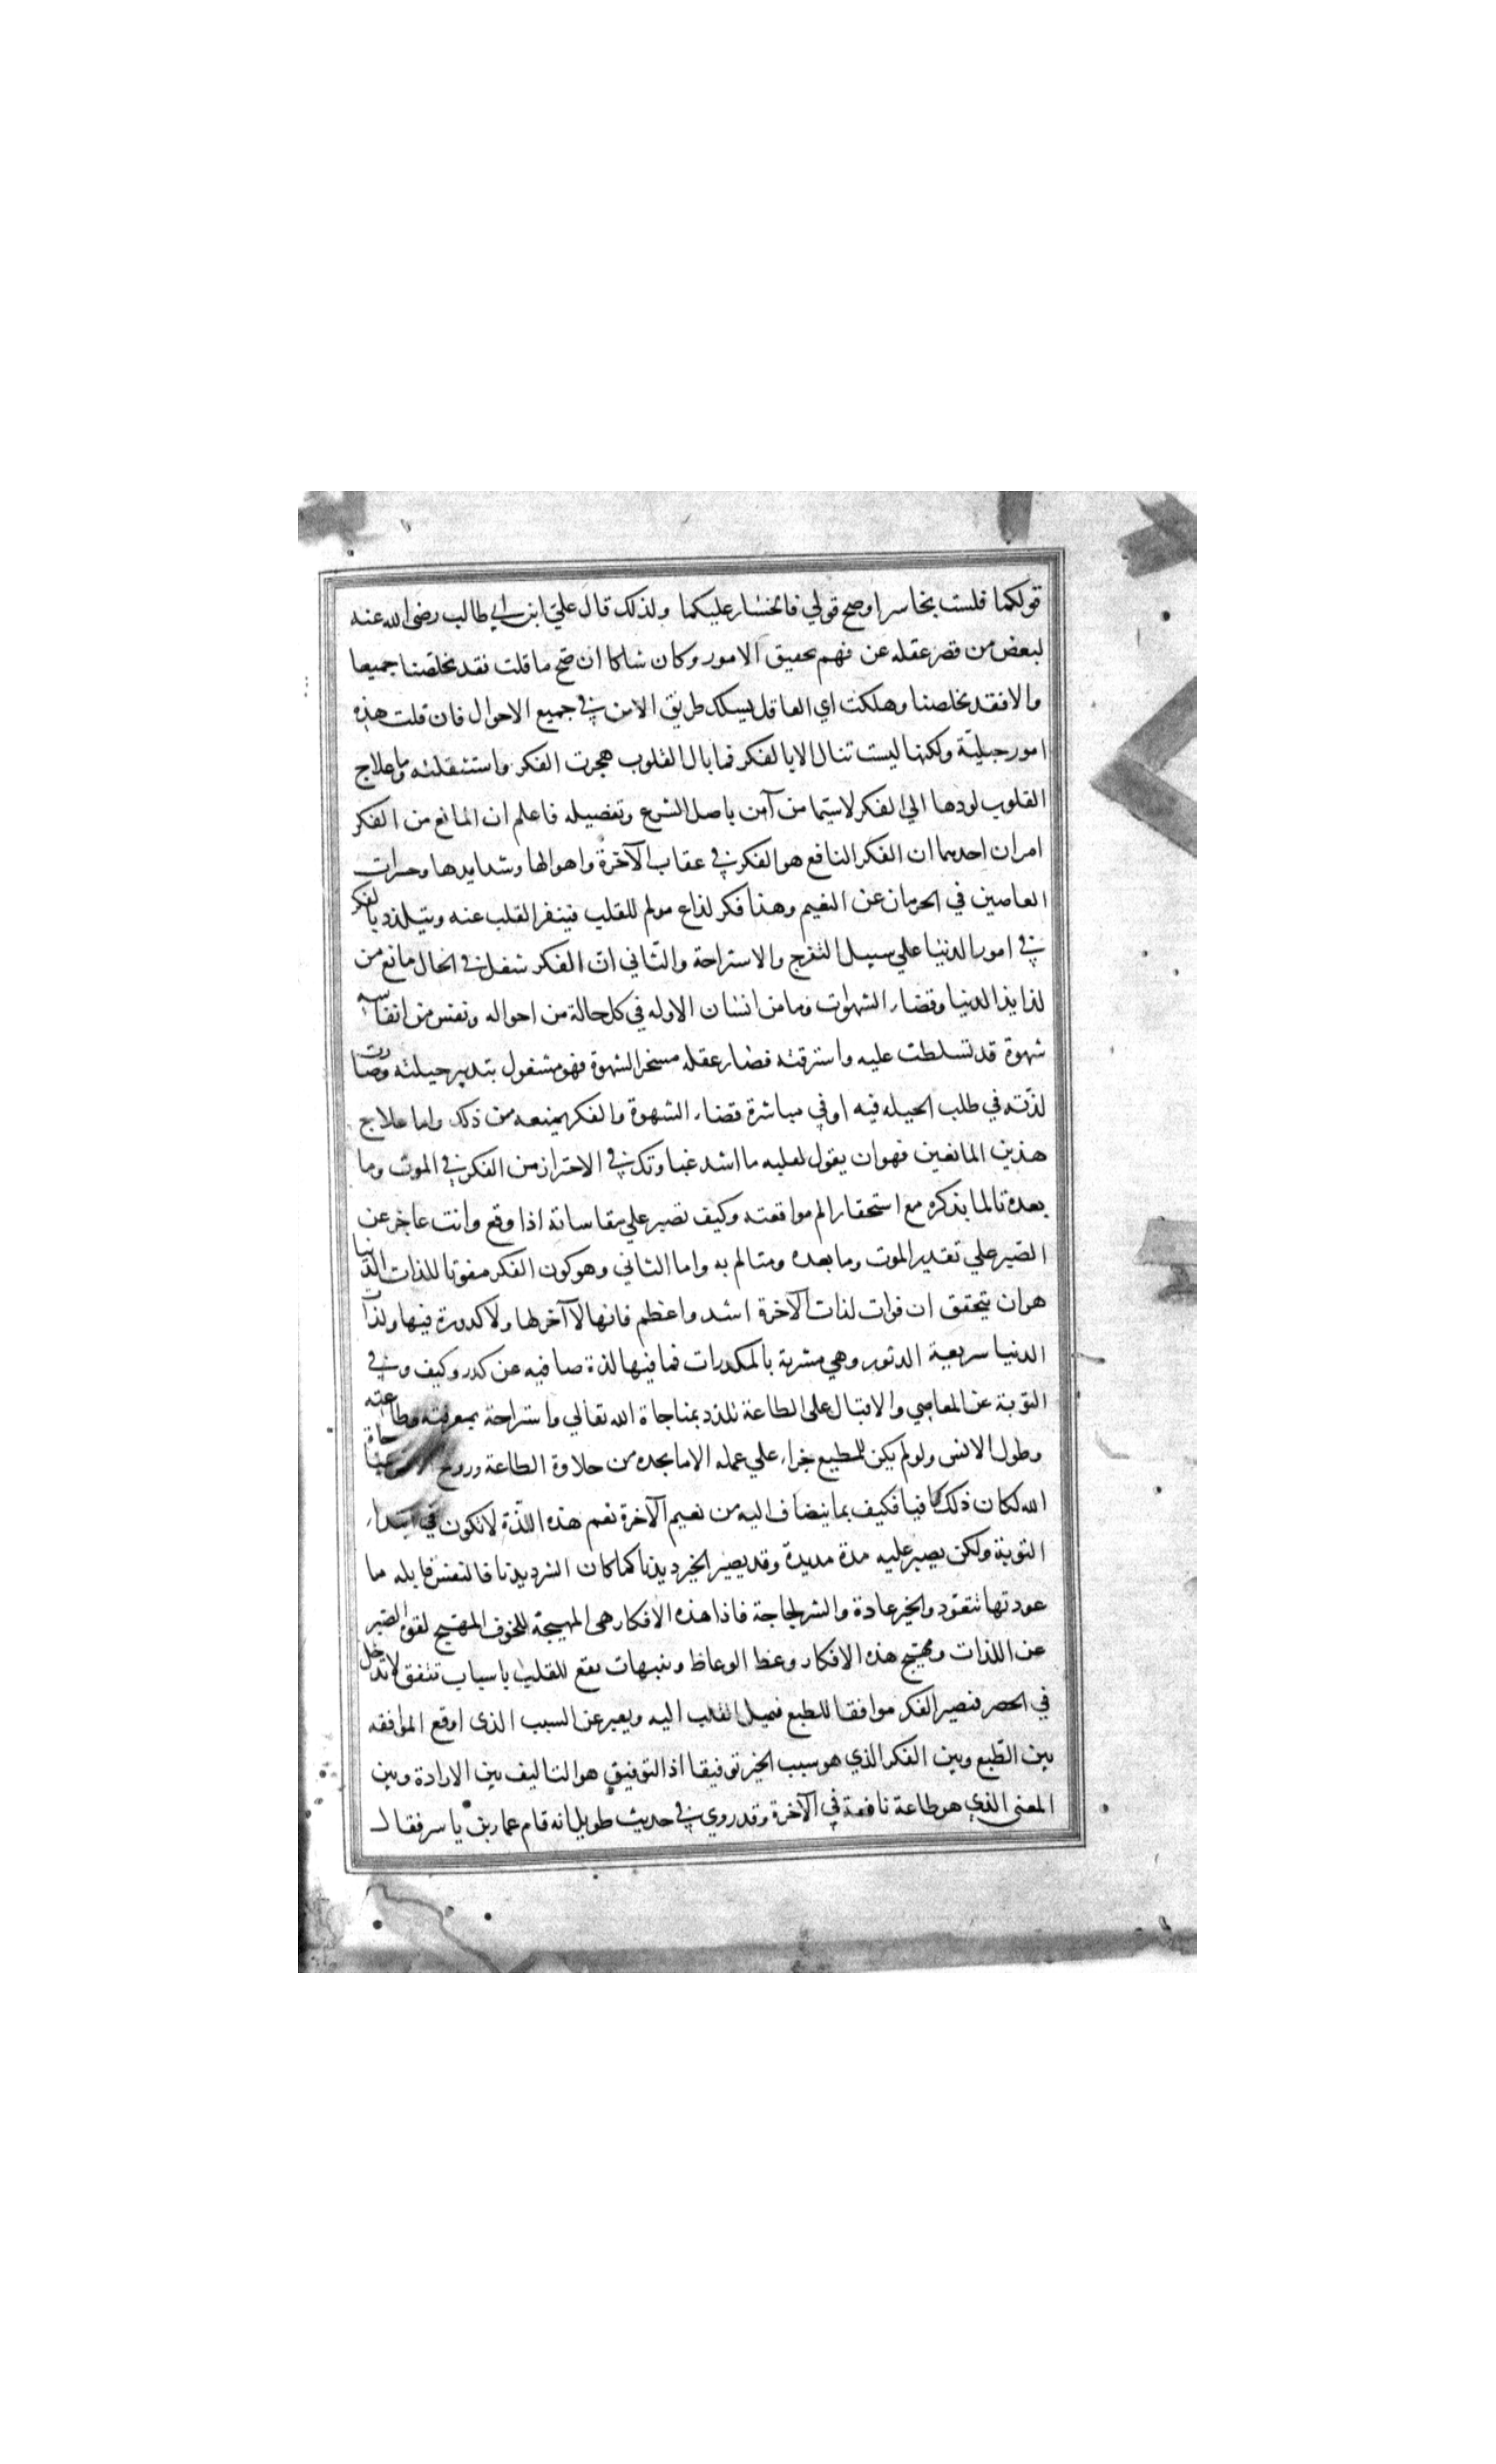 قولكما فلست بخاسر اوصح قولي فالخسار عليكما ولذلك قال علي ابن ابي طالب رضي الله عنه
لبعض من قصر عقله عن فهم تحقيق الامور وكان شاكا ان صح ما قلت فقد تخلصنا جميعا
والا فقد تخلصنا وهلكت اي العاقل يسلك طريق الامن في جميع الاحوال فان قلت هذه
امور جلية ولكنها ليست تنال الا بالفكر فما بال القلوب هجرت الفكر واستثقلته وما علاج
القلوب لردها الي الفكر لاسيما من آمن باصل الشرع وتفصيله فاعلم ان المانع من الفكر
امران احدهما ان الفكر النافع هو الفكر في عقاب الآخرة واهوالها وشدايدها وحسرات
العاصين في الحرمان عن النعيم وهذا فكر لذاع مولم للقلب فينفر القلب عنه ويتلذذ بالفكر
في امور الدنيا علي سبيل التفرج والاستراحة والثاني ان الفكر شغل في الحال مانع من
لذايذ الدنيا وقضاء الشهوات وما من انسان الا وله في كل حالة من احواله ونفس من انفاسه
شهوة قد تسلطت عليه واسترقته فصار عقله مسخر الشهوة فهو مشغول بتدبير حيلته وصارت
لذته في طلب الحيله فيه او في مباشرة قضاء الشهوة والفكر يمنعه من ذلك واما علاج
هذين المانعين فهو ان يقول لقلبه ما اشد غباوتك في الاحتراز من الفكر في الموت وما
بعده تالما بذكره مع استحقار الم مواقعته وكيف تصبر علي مقاساته اذا وقع وانت عاجز عن
الصبر علي تقدير الموت وما بعده ومتالم به واما الثاني وهو كون الفكر مفوتا للذات الدنيا
هو ان يتحقق ان فوات لذات الآخرة اشد واعظم فانها لا آخر لها ولا كدورة فيها ولذات
الدنيا سريعة الدثور وهي مشربة بالمكدرات فما فيها لذة صافيه عن كدر وكيف وفي
التوبة عن المعاصي والاقبال علي الطاعة تلذذ بمناجاة الله تعالي واستراحة بمعرفته وطاعته
وطول الانس ولو لم يكن للمطيع جزاء علي عمله الا ما يجده من حلاوة الطاعة وروح
الله لكان ذلك كافيا فكيف بما ينضاف اليه من نعيم الآخرة نعم هذه اللذة لا تكون في ابتداء
التوبة ولكن يصبر عليه مدة مديدة وقد يصير الخير ديدنا كما كان الشر ديدنا فالنفس قابله ما
عودتها تتعود والخير عادة والشر لجاجة فاذا هذه الافكار هي المهيجة للخوف المهيج لقوة الصبر
عن اللذات ومهيج هذه الافكار وعظ الوعاظ وتنبيهات تقع للقلب باسباب تتفق لا تدخل
في الحصر فيصير الفكر موافقا للطبع فيميل القلب اليه ويعبر عن السبب الذي اوقع الموافقه
بين الطبع وبين الفكر الذي هو سبب الخير توفيقا اذ التوفيق هو التاليف بين الارادة وبين
المعني الذي هو طاعة نافعة في الآخرة وقد روي في حديث طويل انه قام عمار بن ياسر فقال